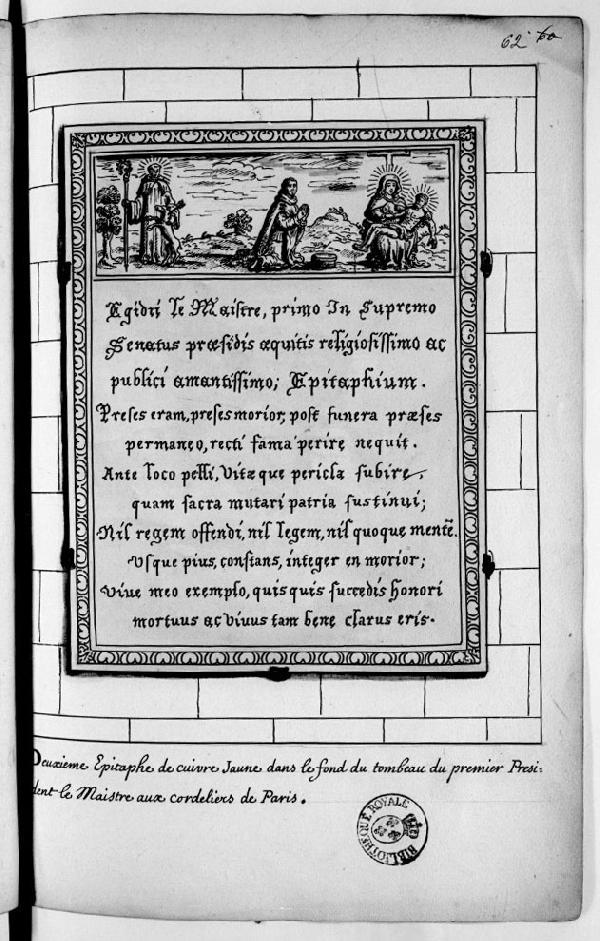 62 bis
Egidii le Maistre, primo In Supremo
Senatus præsidis æquitis religiosissimo ac
publici amantissimo; Epitaphium.
Preses eram, preses morior, post funera præses
permaneo, recti fama perire nequit.
Ante loco pelli, vitæque pericla subire,
quam sacra mutari patria sustinui;
Nil regem offendi, nil legem, nil quoque mentē.
Usque pius, constans, integer en morior;
Vive meo exemplo, quisquis succedis honori
mortuus ac vivus tam bene clarus eris.
Deuxieme Epitaphe de cuivre Jaune dans le fond du tombeau du premier Presi-
dent le Maistre aux cordeliers de Paris.
BIBLIOTHEQUE ROYALE